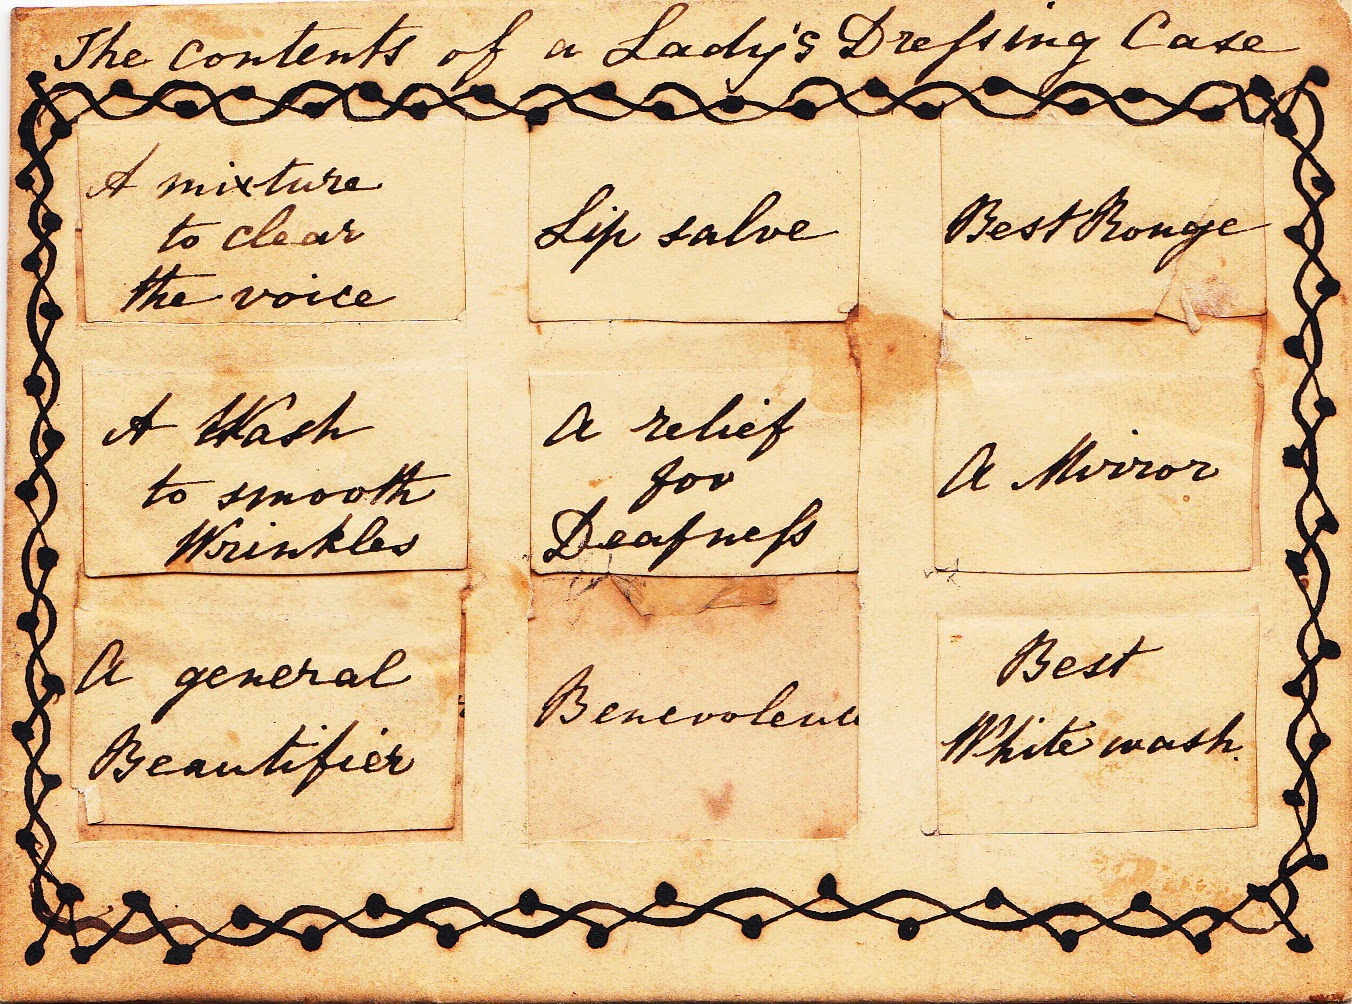 The contents of a Lady's Dreſsing Case
A mixture
to clear
the voice
Lip salve
Best Rouge
A Wash
to smooth
Wrinkles
A relief
for
Deafneſs
A Mirror
A general
Beautifier
Benevolence
Best
White wash.